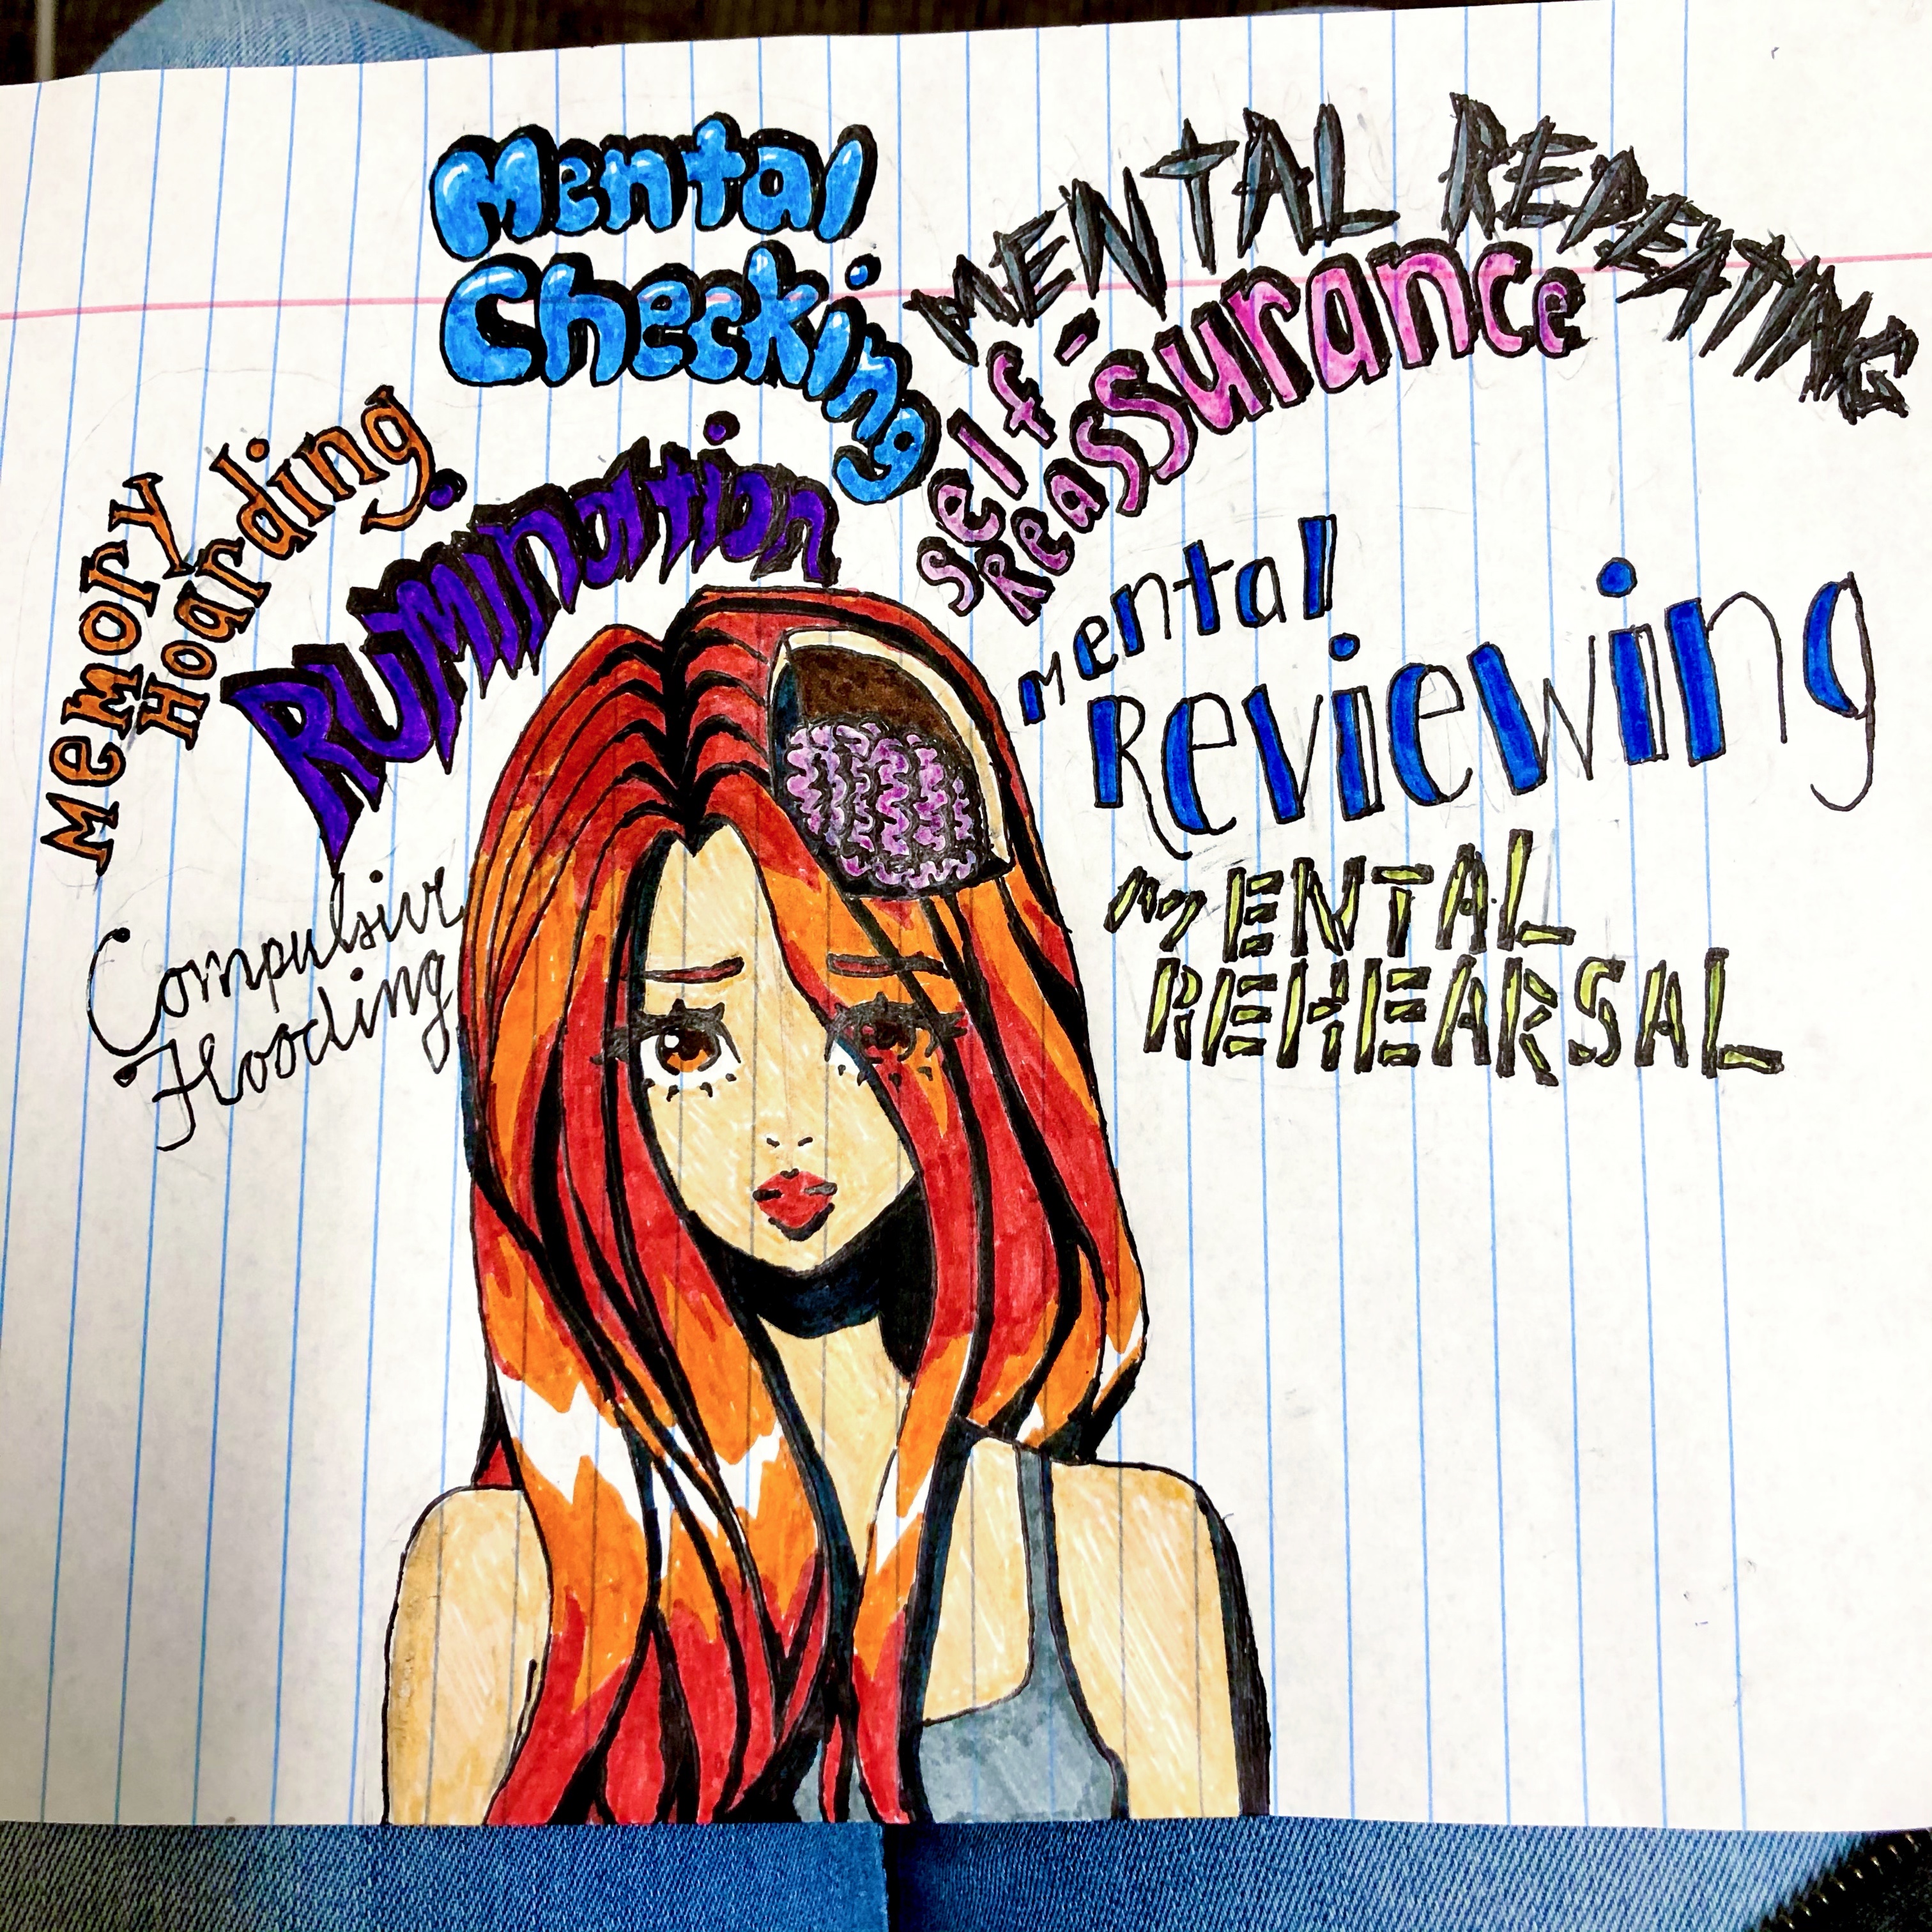 Mental
Checking
MENTAL REPEATING
Self-
Reassurance
Memory
Hoarding
Rumination
Mental
Reviewing
Compulsive
Flooding
MENTAL
REHEARSAL